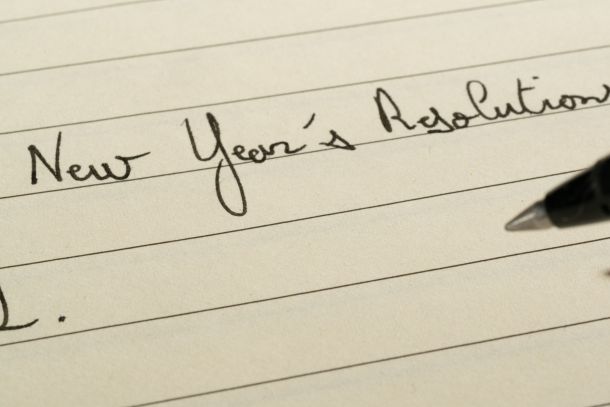 New Year's Resolutions